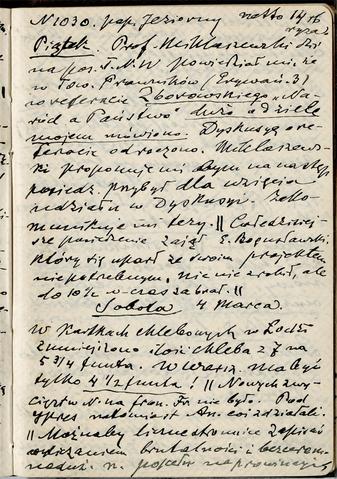 N1030. pap. Jeziorny netto 14 fb
ryza
Piątek. Prof. Miklaszewski dziś
na pos. T.N.W. powiedział mi, że
w Tow. Prawników (Erywań. 3)
po referacie Zborowskiego „Na-
ród a Państwo" dużo o dziele
mojem mówiono. Dyskusyę o re-
feracie odroczono. Miklaszew-
ski proponuje mi bym na następ.
posiedz. przybył dla wzięcia
udziału w Dyskusyi. Zako-
munikuje mi tezy. || Całe dzisiej-
sze posiedzenie zajął E. Bogusławski,
który się uparł ze swoim projektem
niepotrzebnym, nic nie zrobił, ale
do 10½ w. czas zabrał. ||
Sobota 4 Marca.
W kartkach chlebowych w Łodzi
zmniejszono ilość chleba z 7 na
5 3/4 funta. W Warsz. ma być
tylko 4 1/2 funta! || Nowych zwy-
cięstw N. na fran. Fr. nie było. Pod
Ypres natomiast An. coś zdziałali.
|| Możnaby liczne stronnice zapisać
brutalności i bezcerem-
N. pojazdów na prowincyi,